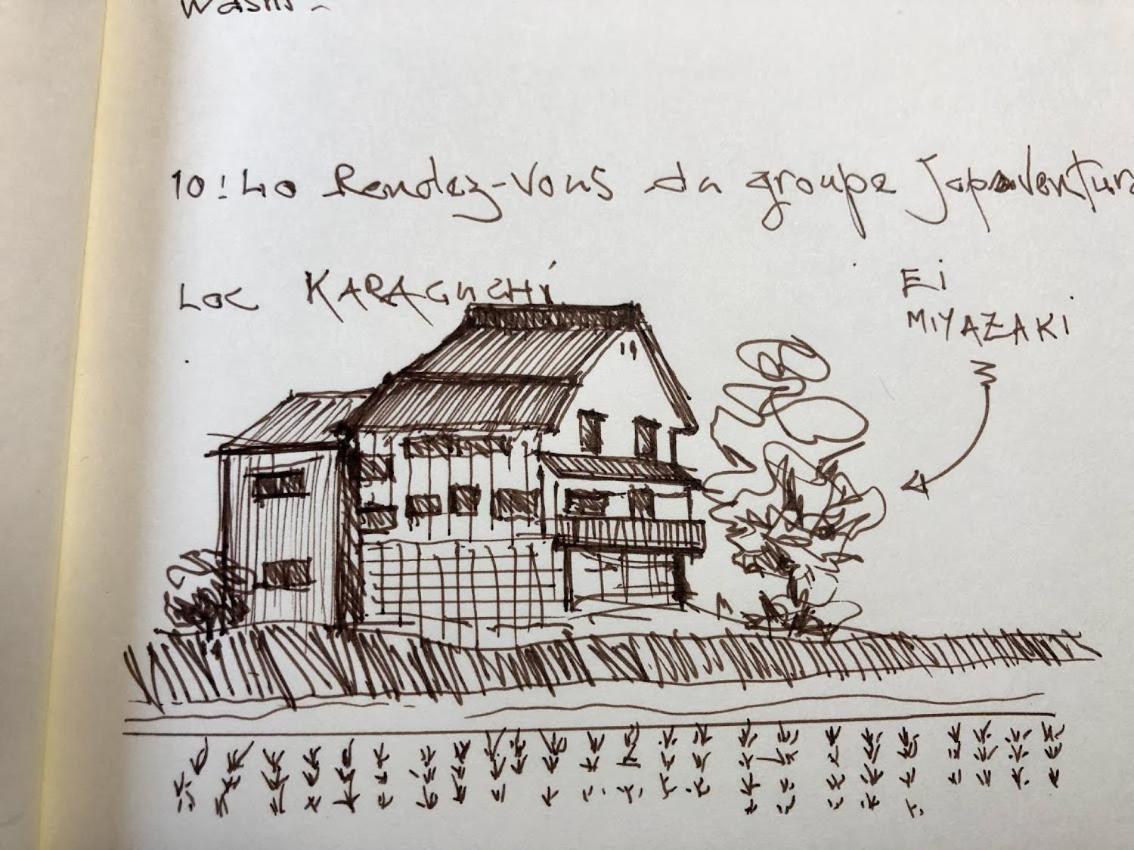 Washi -
10:40 Rendez-vous du groupe Japaventura
Loc KARAGUCHI
Ei
MIYAZAKI